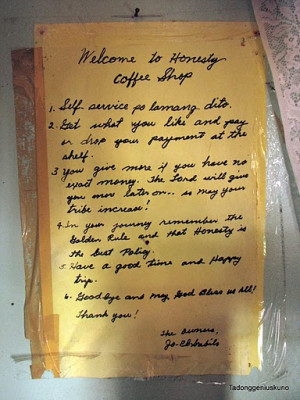 Welcome to Honesty
Coffee Shop
1. Self service po lamang dito.
2. Get what you like and pay
or drop your payment at the
shelf.
3 You give more if you have no
exact money. The Lord will give
you more later on.. so may your
tribe increase!
4. In your journey remember the
Golden Rule and that Honesty is
the Best Policy.
5. Have a good time and Happy
trip.
6. Goodbye and may God Bless us All!
Thank you!
The Owners,
Tadonggeniuskuno